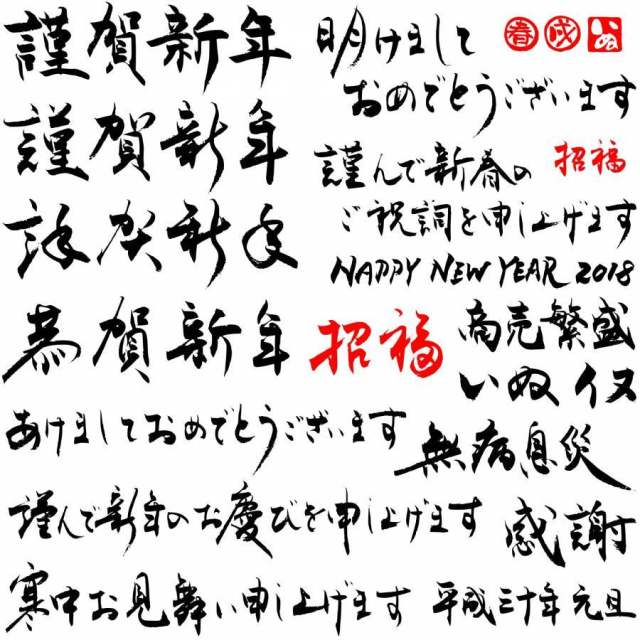 謹賀新年
謹賀新年
謹賀新年
恭賀新年
明けまして
おめでとうございます
春 戌 いぬ
謹んで新春の
招福
ご祝詞を申し上げます
HAPPY NEW YEAR 2018
招福
商売繁盛
いぬ イヌ
あけましておめでとうございます
無病息災
謹んで新年のお慶びを申し上げます
感謝
寒中お見舞い申し上げます
平成三十年 元旦